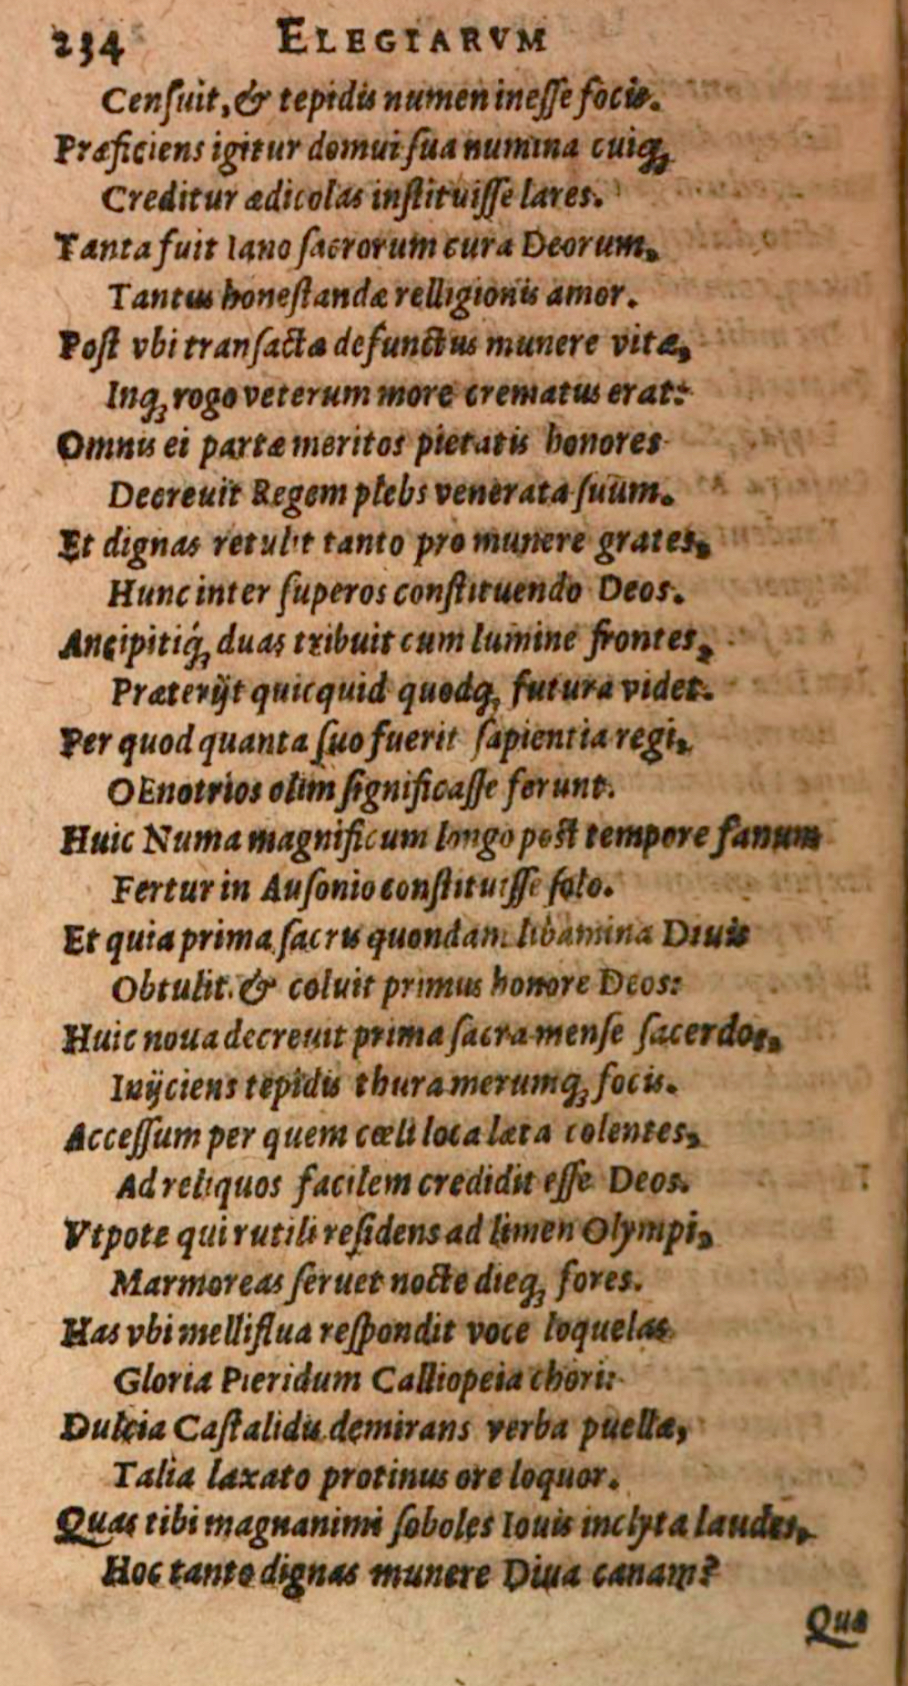 234 ELEGIARVM
Censuit, & tepidis numen inesse focis.
Præficiens igitur domui sua numina cuiq;
Creditur ædicolas instituisse lares.
Tanta fuit Iano sacrorum cura Deorum,
Tantus honestandæ relligionis amor.
Post vbi transacta defunctus munere vitæ,
Inq; rogo veterum more crematus erat:
Omnis ei partæ meritos pietatis honores
Decreuit Regem plebs venerata suum.
Et dignas retulit tanto pro munere grates,
Hunc inter superos constituendo Deos.
Ancipitiq́; duas tribuit cum lumine frontes,
Præterijt quicquid quodq; futura videt.
Per quod quanta suo fuerit sapientia regi,
OEnotrios olim significasse ferunt.
Huic Numa magnificum longo post tempore fanum
Fertur in Ausonio constituisse solo.
Et quia prima sacris quondam libamina Diuis
Obtulit. & coluit primus honore Deos:
Huic noua decreuit prima sacra mense sacerdos,
Inijciens tepidis thura merumq; focis.
Accessum per quem cœli loca læta colentes,
Ad reliquos facilem credidit esse Deos.
Vtpote qui rutili residens ad limen Olympi,
Marmoreas seruet nocte dieq; fores.
Has vbi melliflua respondit voce loquelas
Gloria Pieridum Calliopeia chori:
Dulcia Castalidis demirans verba puellæ,
Talia laxato protinus ore loquor.
Quas tibi magnanimi soboles Iouis inclyta laudes,
Hoc tanto dignas munere Diua canam?
Qua